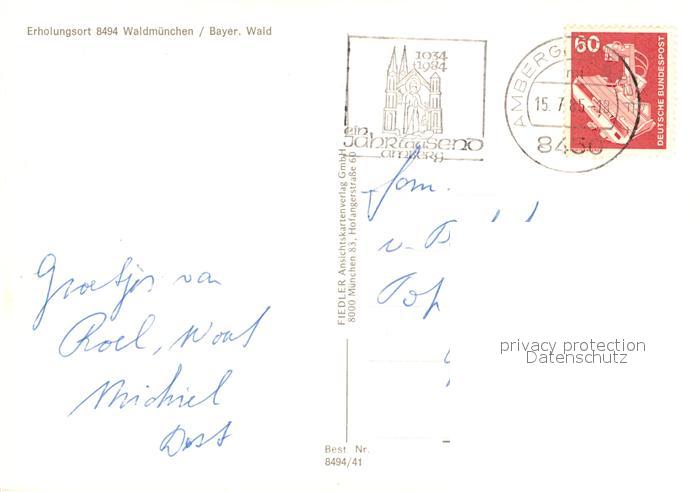 Erholungsort 8494 Waldmünchen / Bayer. Wald
1034
1984
ein
Jahrtausend
amberg
AMBERG
15.7.85-18
8450
60
DEUTSCHE BUNDESPOST
FIEDLER Ansichtskartenverlag GmbH
8000 München 83, Hofangerstraße 60
Fam.
v. B
Top
Groetjes van
Roel, Wout
Michiel
privacy protection
Datenschutz
Best Nr.
8494/41